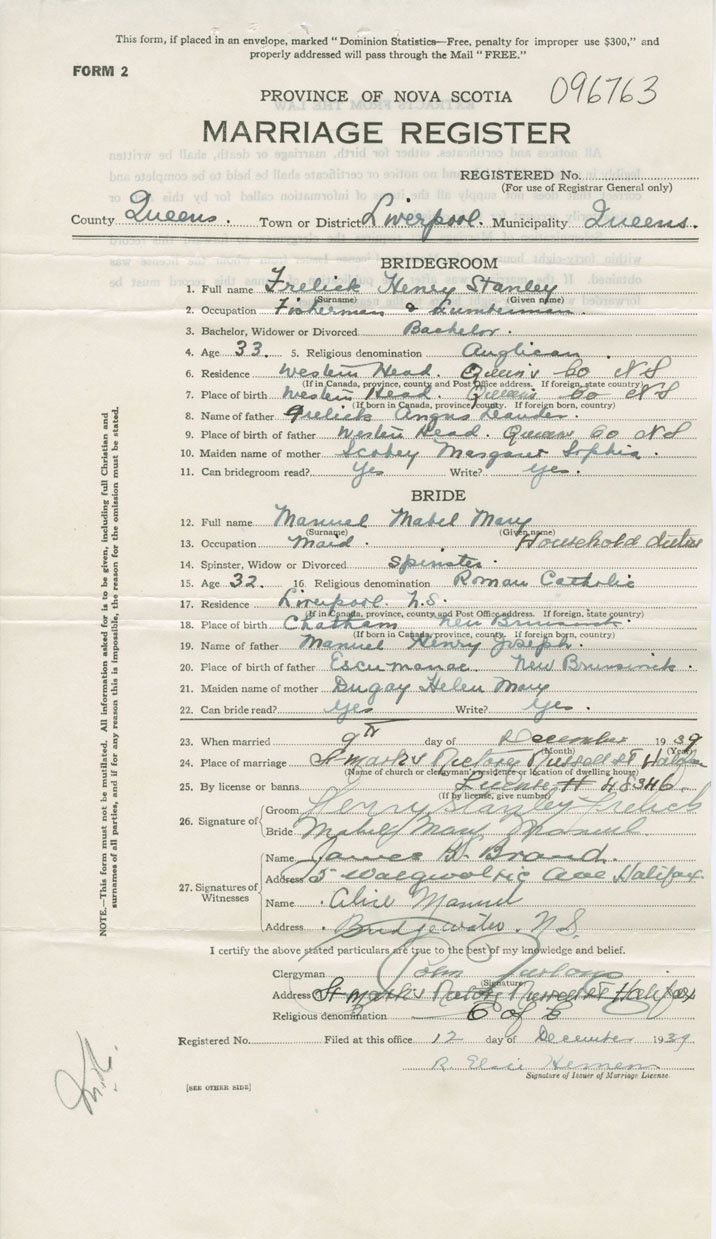 This form, if placed in an envelope, marked "Dominion Statistics—Free, penalty for improper use $300," and
properly addressed will pass through the Mail "FREE."
FORM 2
PROVINCE OF NOVA SCOTIA 096763
MARRIAGE REGISTER
REGISTERED No.
(For use of Registrar General only)
County Queens. Town or District Liverpool. Municipality Queens.
BRIDEGROOM
1. Full name Frelick Henry Stanley
(Surname) (Given name)
2. Occupation Fisherman & Lumberman.
3. Bachelor, Widower or Divorced Bachelor.
4. Age 33. 5. Religious denomination Anglican.
6. Residence Western Head. Queen's Co NS
(If in Canada, province, county and Post Office address. If foreign, state country)
7. Place of birth Western Head. Queens Co NS
(If born in Canada, province, county. If foreign born, country)
8. Name of father Frelick Angus Leander.
9. Place of birth of father Western Head. Queen Co NS
10. Maiden name of mother Scobey Margaret Sophia.
11. Can bridegroom read? Yes Write? Yes.
BRIDE
12. Full name Manuel Mabel Mary
(Surname) (Given name)
13. Occupation Maid. Household duties
14. Spinster, Widow or Divorced Spinster.
15. Age 32. 16. Religious denomination Roman Catholic
17. Residence Liverpool. N.S.
(If in Canada, province, county and Post Office address. If foreign, state country)
18. Place of birth Chatham New Brunswick.
(If born in Canada, province, county. If foreign born, country)
19. Name of father Manuel Henry Joseph.
20. Place of birth of father Escuminac New Brunswick.
21. Maiden name of mother Dugay Helen Mary
22. Can bride read? Yes Write? Yes.
23. When married 9th day of December 1939
(Month) (Year)
24. Place of marriage St Mark's Rectory Russell St Halifax
(Name of church or clergyman's residence or location of dwelling house)
25. By license or banns License # 48346.
(If by license, give number)
26. Signature of Groom Henry Stanley Frelick
Bride Mabel Mary Manuel.
27. Signatures of Witnesses
Name James Brand.
Address 5 Ave Halifax.
Name Alice Manuel
Address Bridgewater. N.S.
I certify the above stated particulars are true to the best of my knowledge and belief.
Clergyman John Furlong
(Signature)
Address St Mark's Rectory Russell St Halifax
Religious denomination C of E
Registered No. Filed at this office 12 day of December 1939
R. Elsie
Signature of Issuer of Marriage License.
[SEE OTHER SIDE]
NOTE.—This form must not be mutilated. All information asked for is to be given, including full Christian and
surnames of all parties, and if for any reason this is impossible, the reason for the omission must be stated.